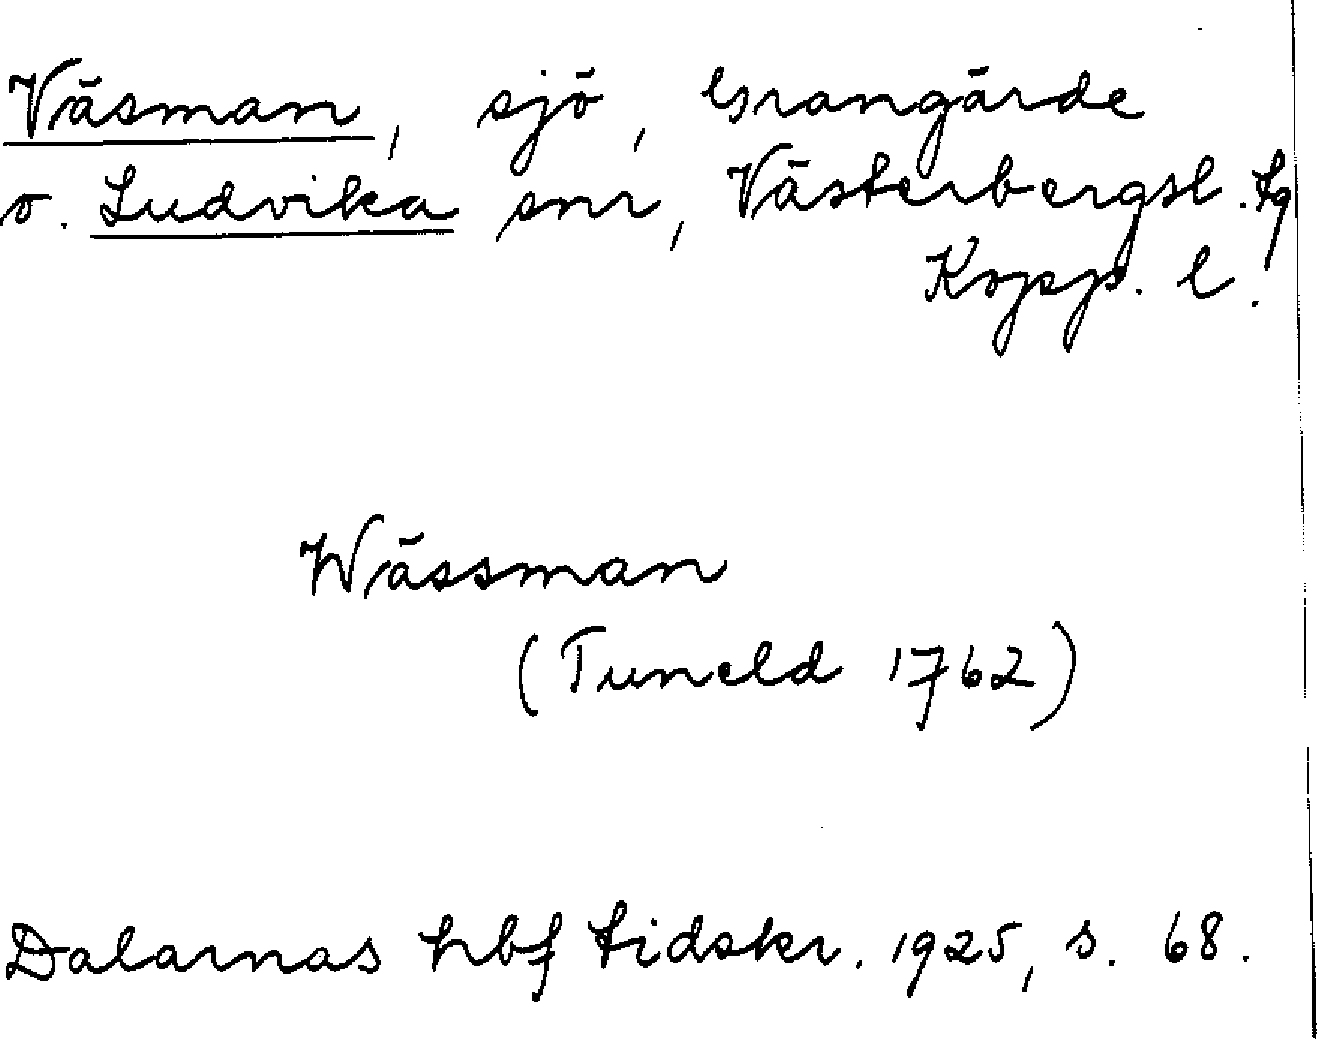 Väsman, sjö, Grangärde
o. Ludvika snr, Västerbergsl. tg
Kopp. l.
Wässman
(Tuneld 1762)
Dalarnas hbf tidskr. 1925, s. 68.